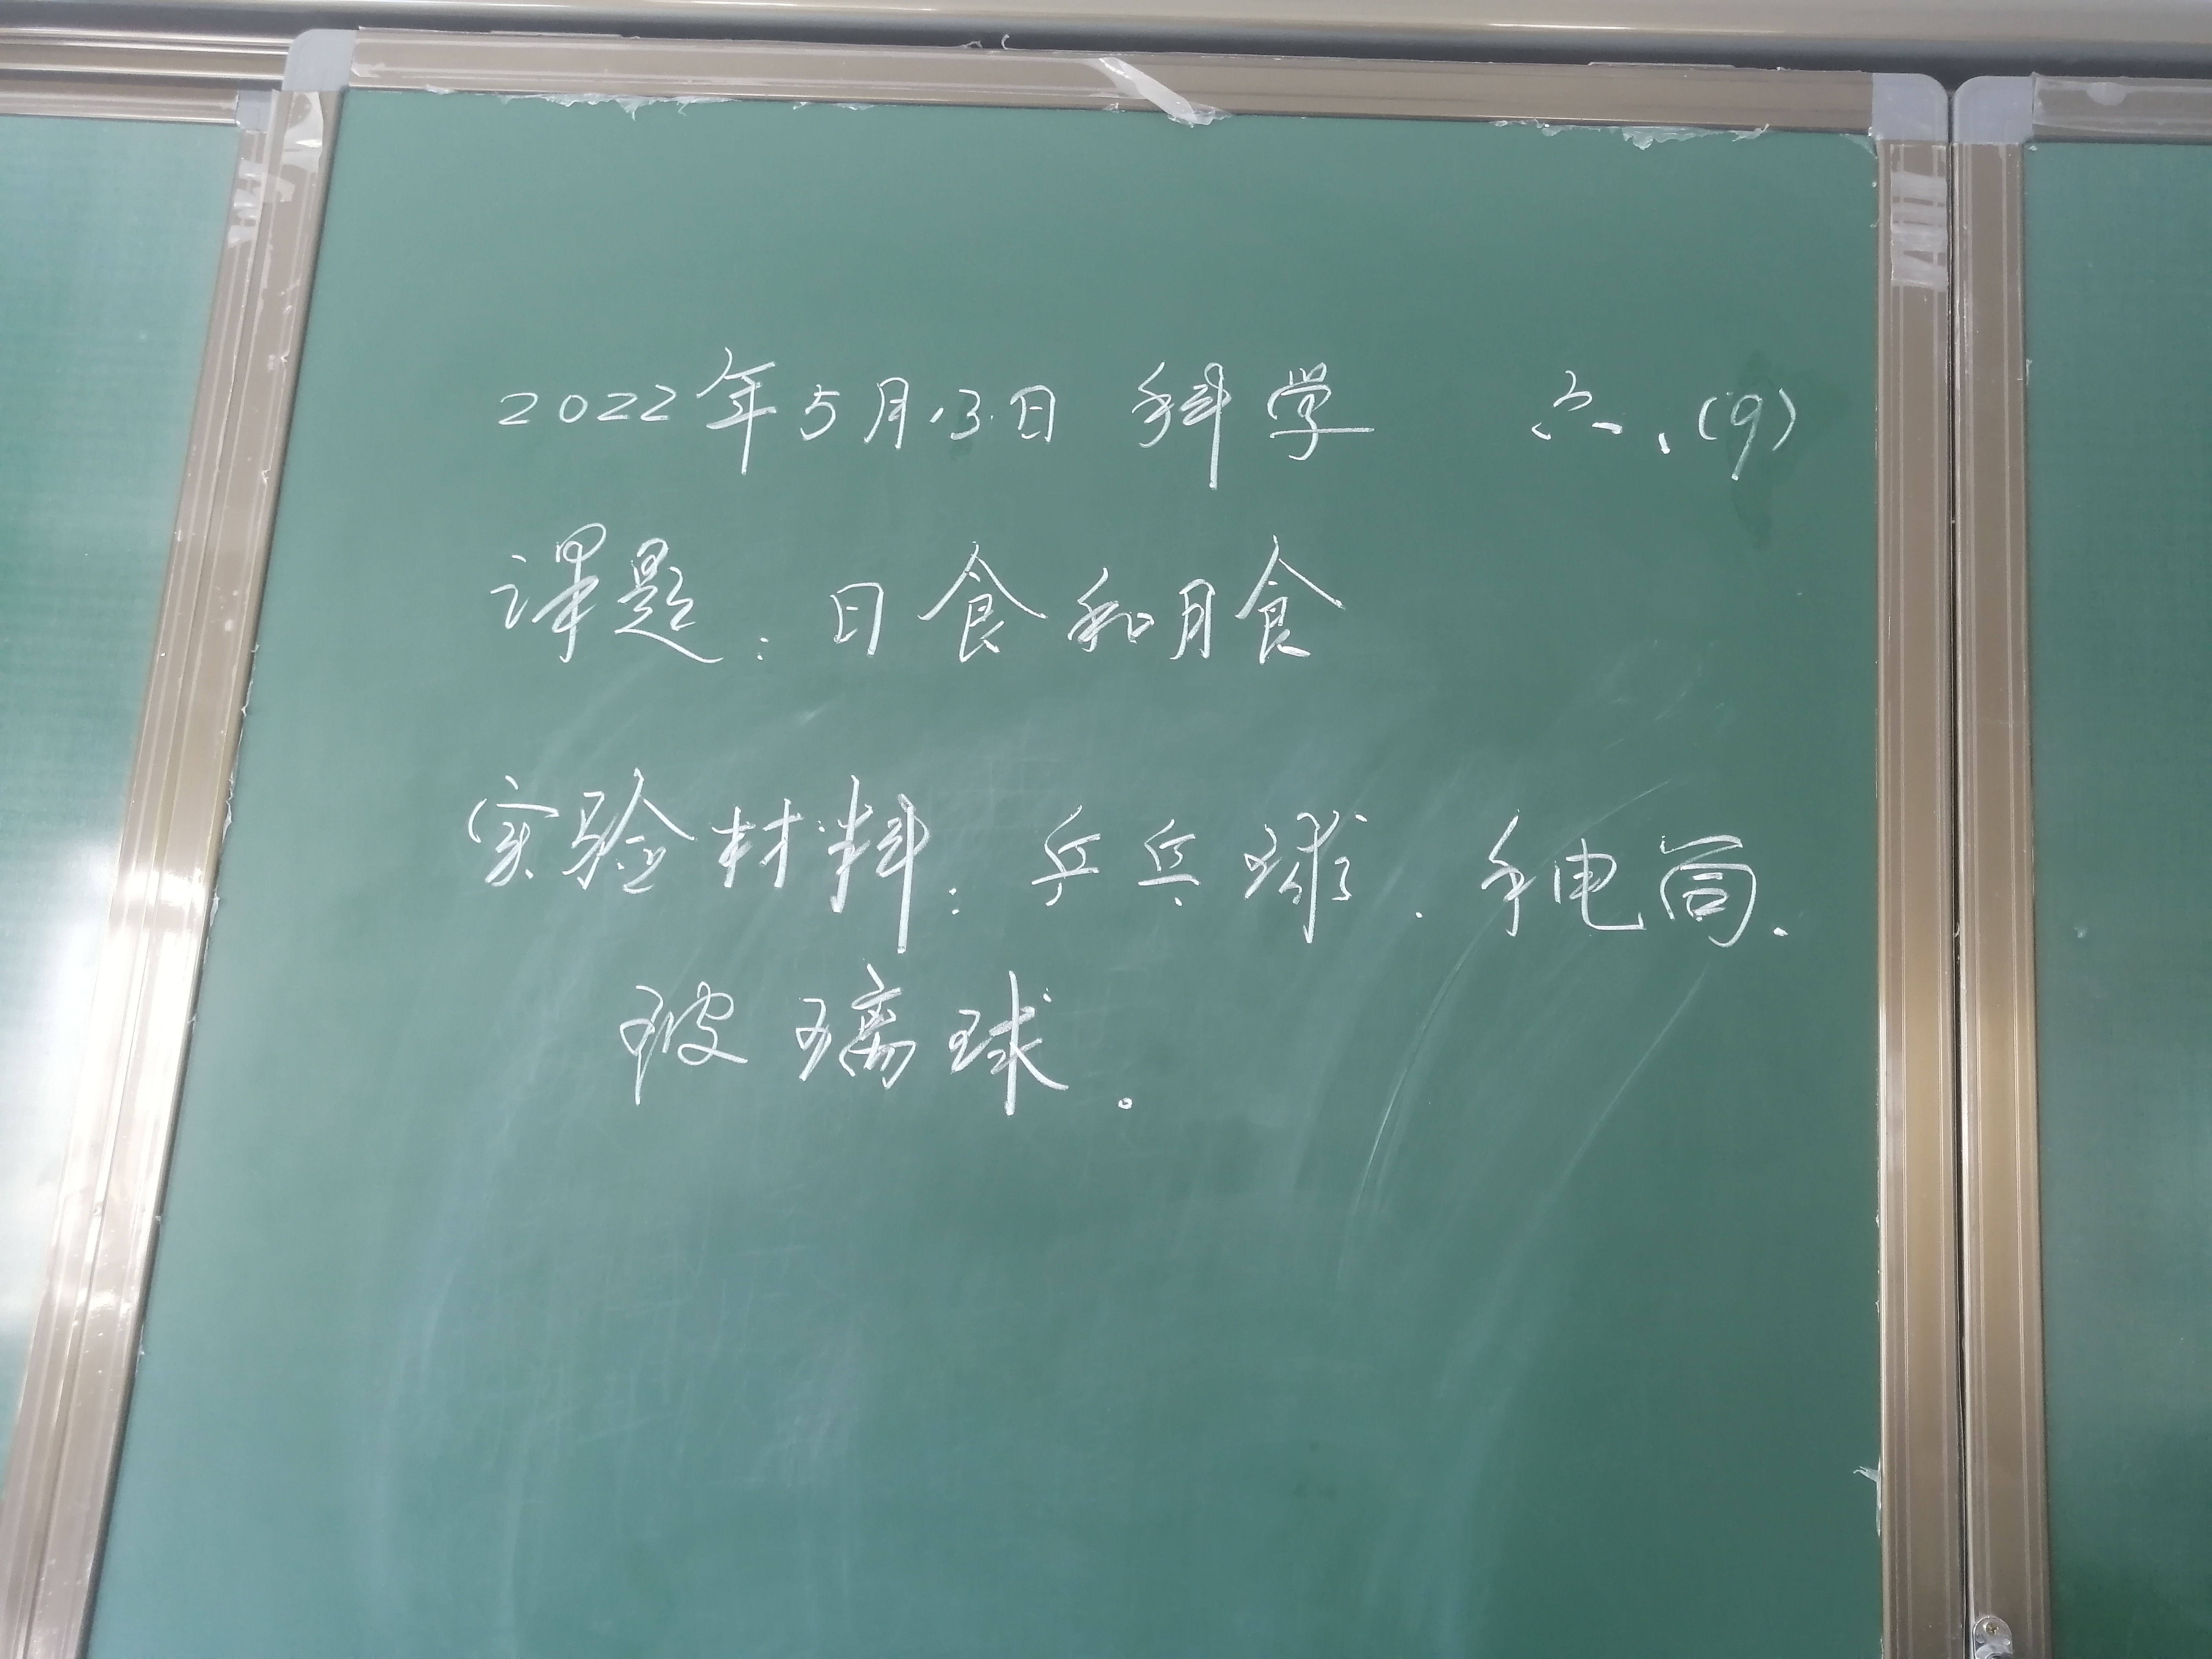 2022年5月13日 科学 六、(9)
课题：日食和月食
实验材料：乒乓球、手电筒、
玻璃球。